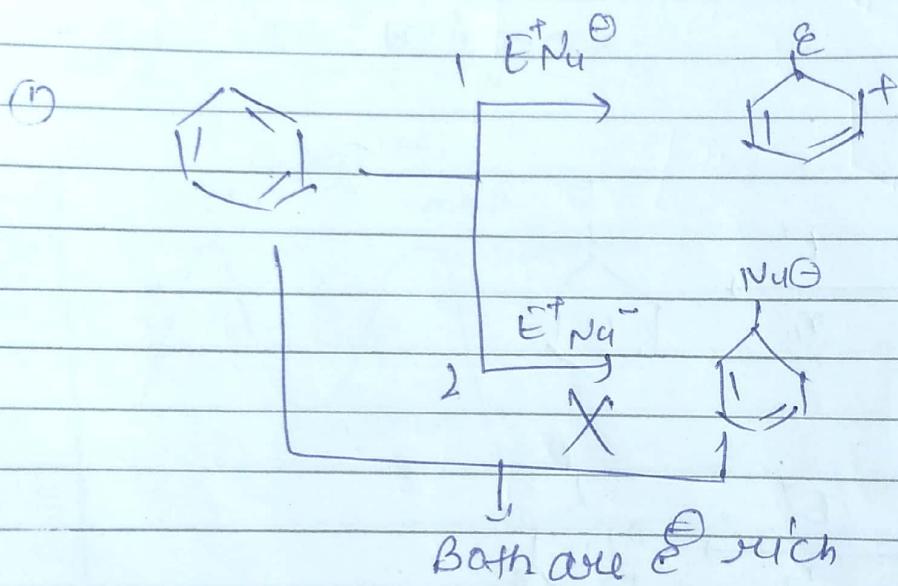 ①
1 E⁺Nu⊖
E
+
Nu⊖
E⁺Nu⁻
2
X
Both are e⊖ rich